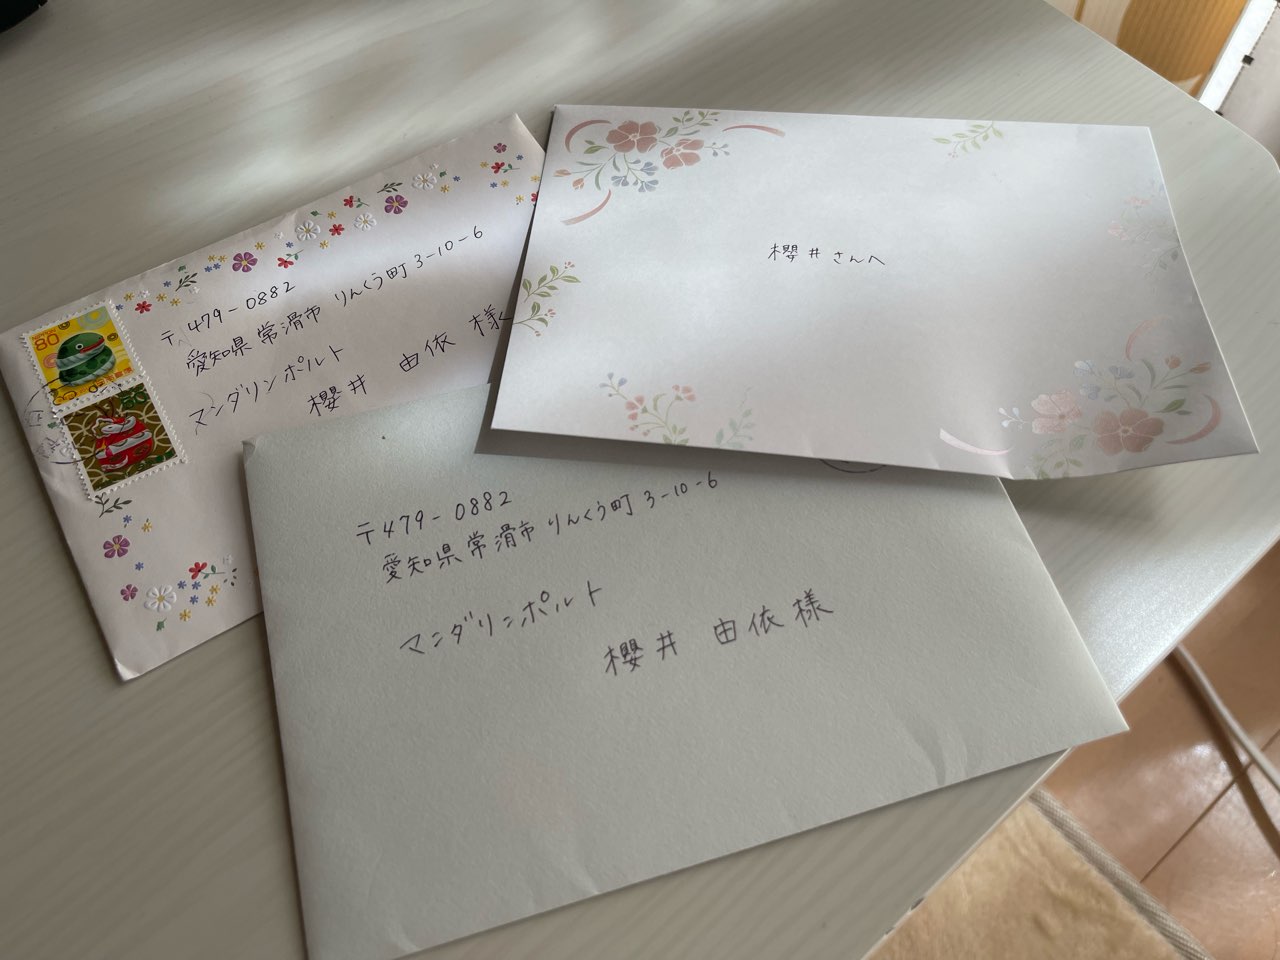 〒479-0882
愛知県常滑市りんくう町3-10-6
マンダリンポルト
櫻井 由依 様
80
櫻井さんへ
〒479-0882
愛知県常滑市りんくう町3-10-6
マンダリンポルト
櫻井 由依様